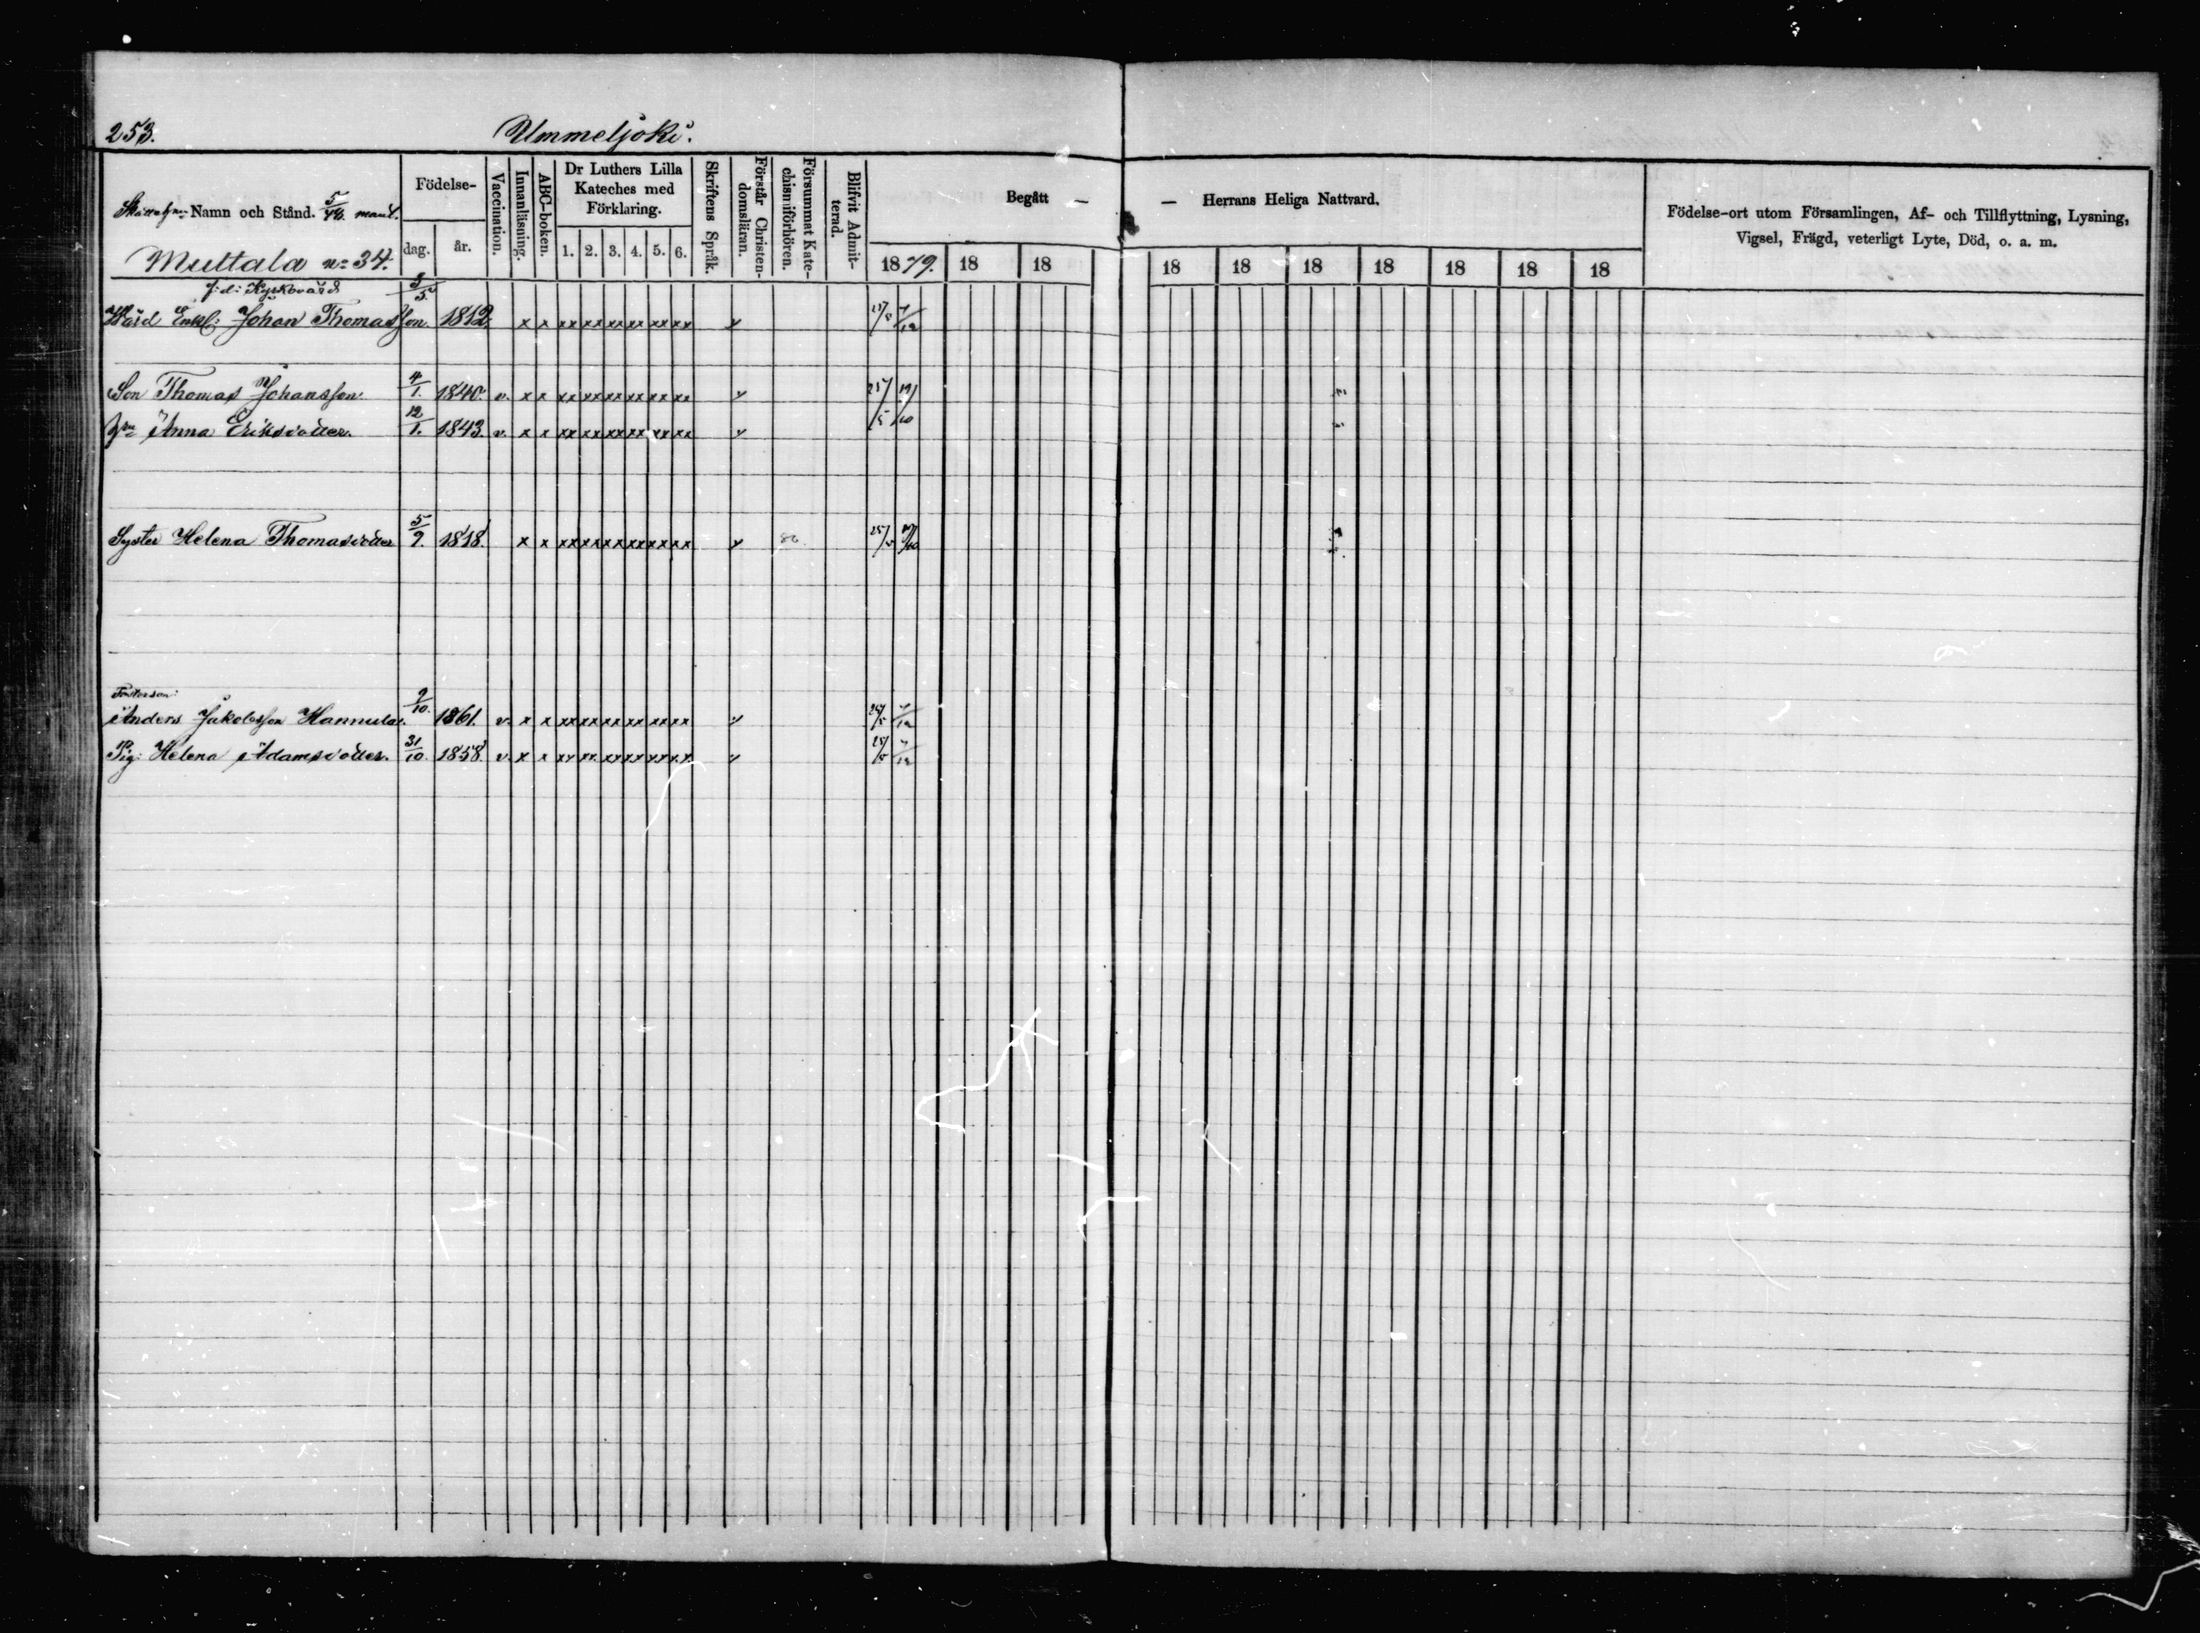 253. Ummeljoki.
Namn och Stånd. 5/48 mantl.
Födelse-
dag. år.
Vaccination.
Innanläsning.
ABC-boken.
Dr Luthers Lilla
Kateches med
Förklaring.
1. 2. 3. 4. 5. 6.
Skriftens Språk.
Förstår Christen-
domsläran.
Försummat Kate-
chismiförhören.
Blifvit Admit-
terad.
Begått — — Herrans Heliga Nattvard.
1879. 18 18 18 18 18 18 18 18 18
Födelse-ort utom Församlingen, Af- och Tillflyttning, Lysning,
Vigsel, Frägd, veterligt Lyte, Död, o. a. m.
Muttala No 34.
f: d: Kyrkovärd
Värd Enkl: Johan Thomasson. 3/5 1812. x x xx xx xx xx xx xx v 25/5 7/12
Son Thomas Johansson. 4/1. 1840. v. x x xx xx xx xx xx xx v 25/5 19/10
Hu Anna Eriksdotter. 12/1. 1843. v. x x xx xx xx xx xx xx v
Syster Helena Thomasdotter 5/9. 1818. x x xx xx xx xx xx xx v 80. 25/5 19/10
Fosterson:
Anders Jakobsson Hannula. 9/10. 1861. v. x x xx xx xx xx xx xx v 25/5 7/12
Pig: Helena Adamsdotter. 31/10. 1858. v. x x xx xx xx xx xx xx v 25/5 7/12